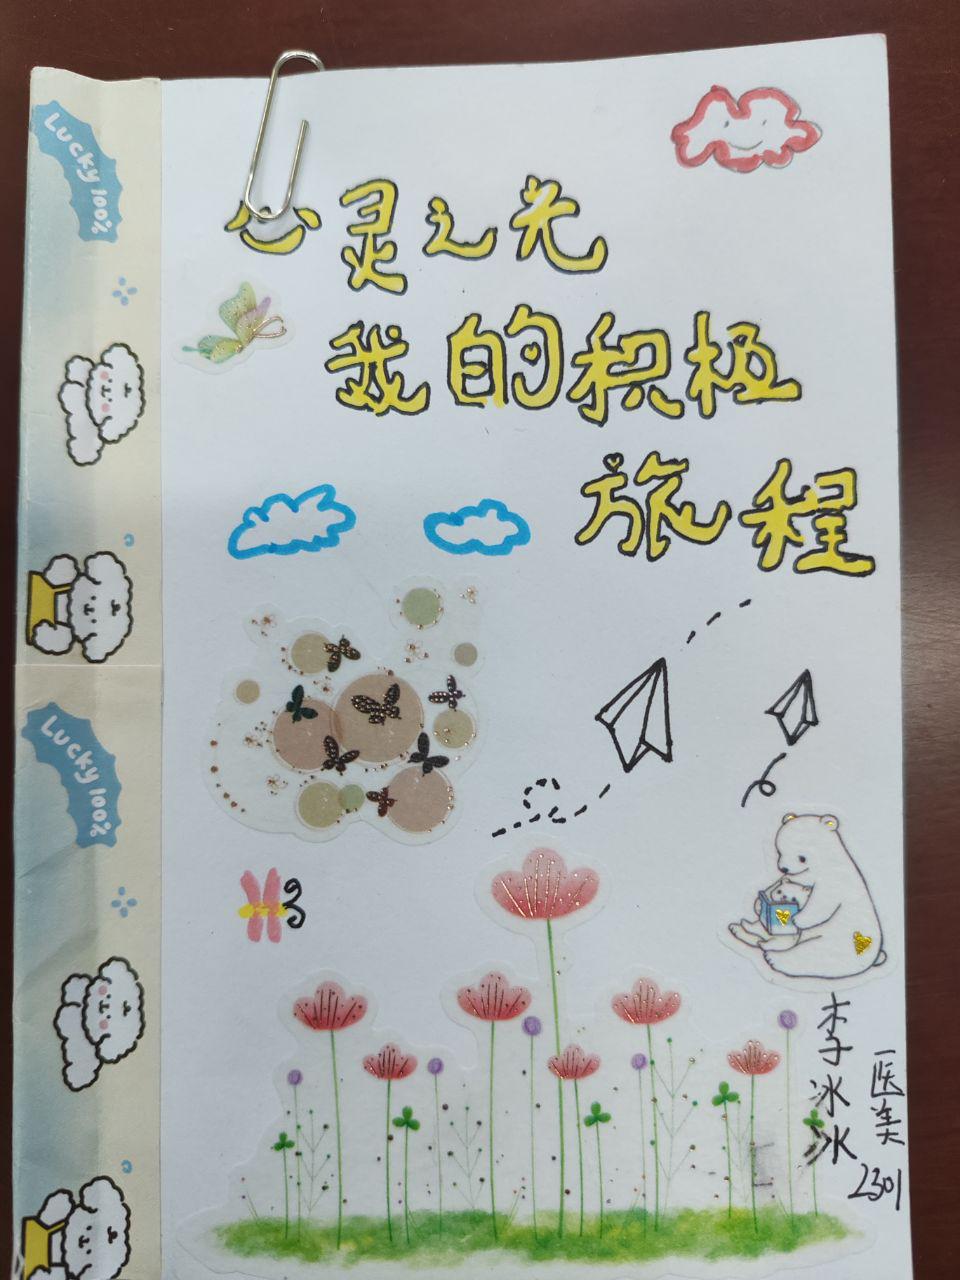 Lucky 100%
心灵之光
我的积极
旅程
Lucky 100%
李冰冰
医美
2301